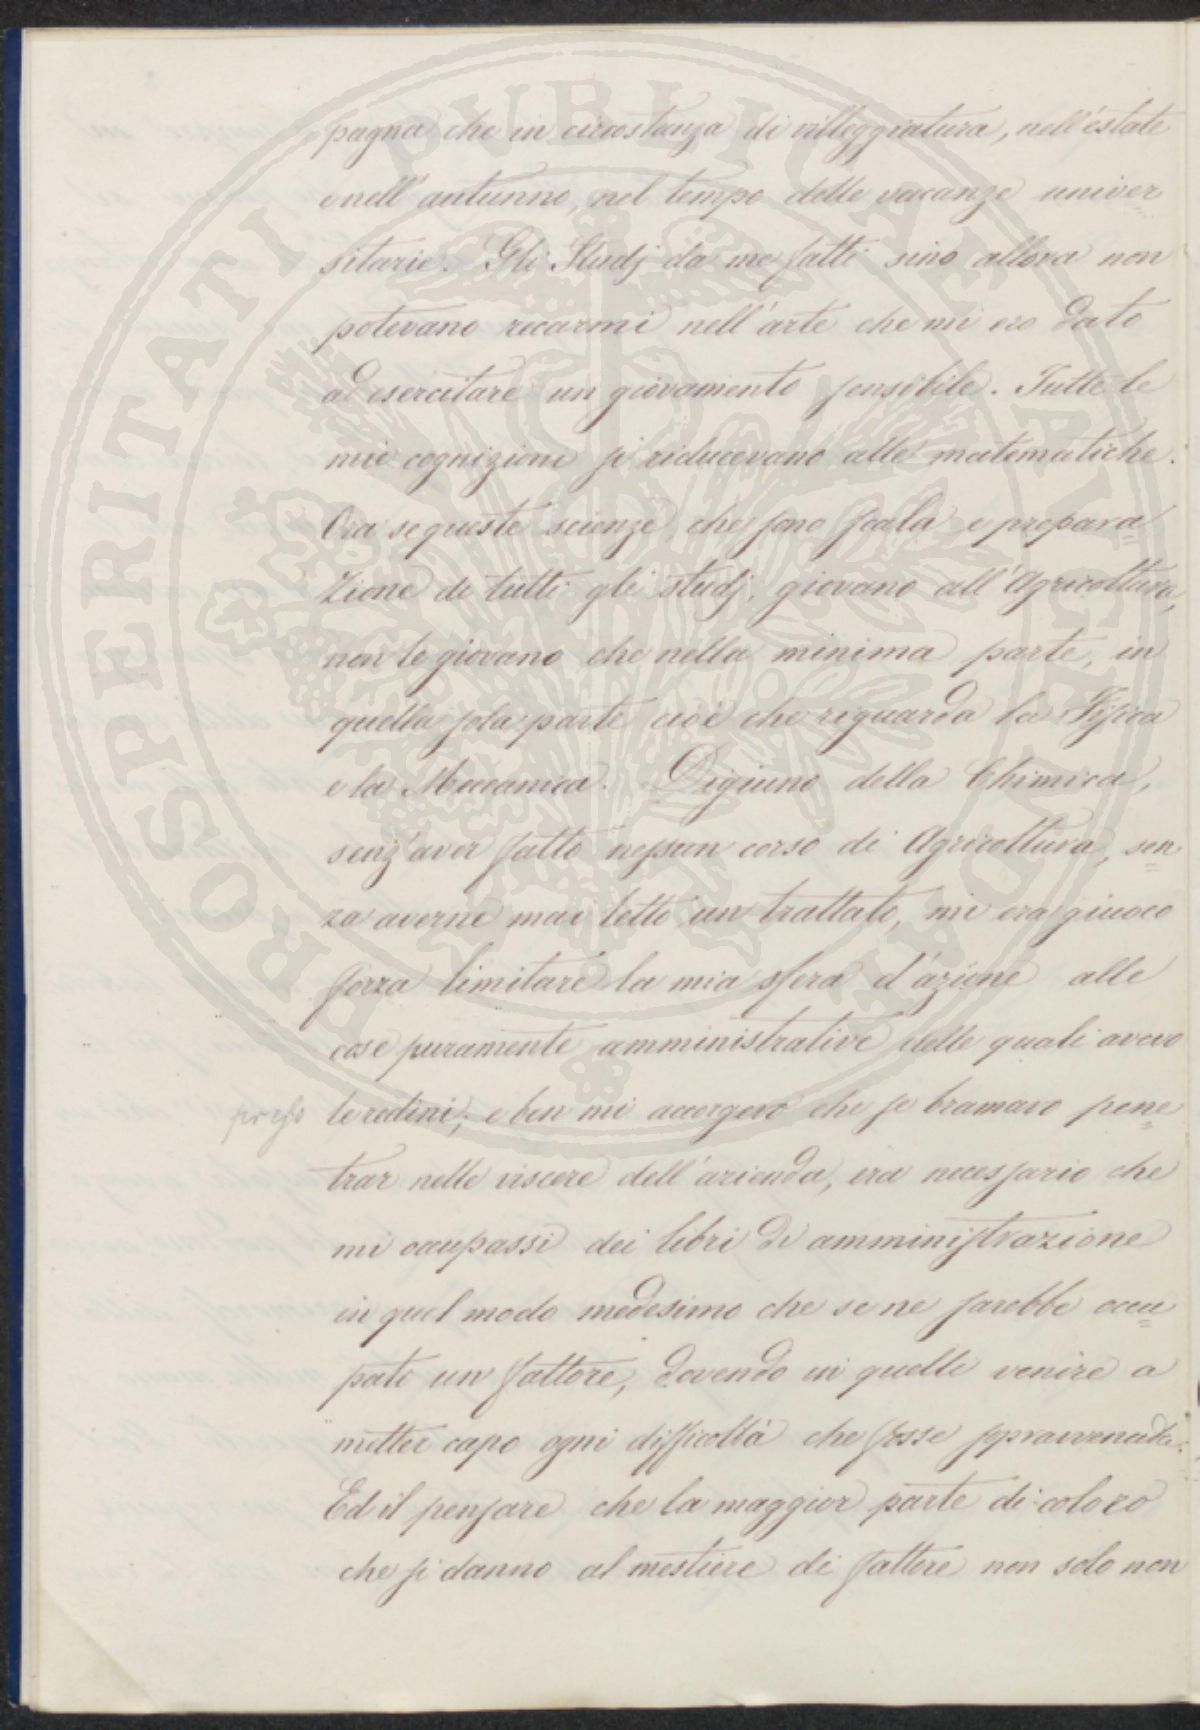 pagna che in circostanza di villeggiatura, nell'estate
e nell'autunno, nel tempo delle vacanze univer
sitarie. Gli Studj da me fatti sino allora non
potevano recarmi nell'arte che mi ero dato
ad esercitare un giovamento sensibile. Tutte le
mie cognizioni si riducevano alle matematiche.
Ora se queste scienze, che sono scala e prepara
zione di tutti gli studj, giovano all'Agricoltura,
non le giovano che nella minima parte, in
quella sola parte cioè che riguarda la Fisica
e la Meccanica. Digiuno della Chimica,
senz'aver fatto nessun corso di Agricoltura, sen
za averne mai letto un trattato, mi era giuoco
forza limitare la mia sfera d'azione alle
cose puramente amministrative delle quali avevo
preso le redini; e ben mi accorgevo che se bramavo pene
trar nelle viscere dell'azienda, era necessario che
mi occupassi dei libri di amministrazione
in quel modo medesimo che se ne sarebbe occu
pato un fattore, dovendo in quelli venire a
metter capo ogni difficoltà che fosse sopravvenuta.
Ed il pensare che la maggior parte di coloro
che si danno al mestiere di fattore non solo non
PROSPERITATI PUBLICAE AUGENDAE